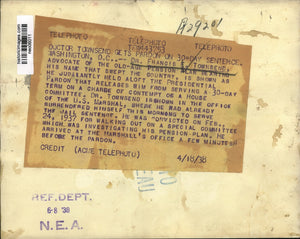 A29201
TELEPHOTO TELEPHOTO TELEPHOTO
DOCTOR TOWNSEND GETS PARDON ON 30-DAY SENTENCE.
WASHINGTON, D.C.-- DR. FRANCIS E. TOWNSEND,
ADVOCATE OF THE OLD-AGE PENSION PLAN BEARING
HIS NAME THAT SWEPT THE COUNTRY, SMILED
AS HE JUBILANTLY HELD ALOFT THE PRESIDENTIAL
PARDON THAT RELEASES HIM FROM SERVING A 30-DAY
TERM ON A CHARGE OF CONTEMPT OF A HOUSE
COMMITTEE. DR. TOWNSEND IS IN THE OFFICE
OF THE U.S. MARSHAL, WHERE HE HAD ALREADY
SURRENDERED HIMSELF THIS MORNING TO SERVE
THE JAIL SENTENCE. HE WAS CONVICTED ON FEB.
24, 1937 FOR WALKING OUT ON A SPECIAL COMMITTEE
WHICH WAS INVESTIGATING HIS PENSION PLAN. HE
ARRIVED AT THE MARSHALL'S OFFICE A FEW MINUTES
BEFORE THE PARDON.
CREDIT (ACME TELEPHOTO) 4/18/38
EAU
REF. DEPT.
6-8 '38
N.E.A.